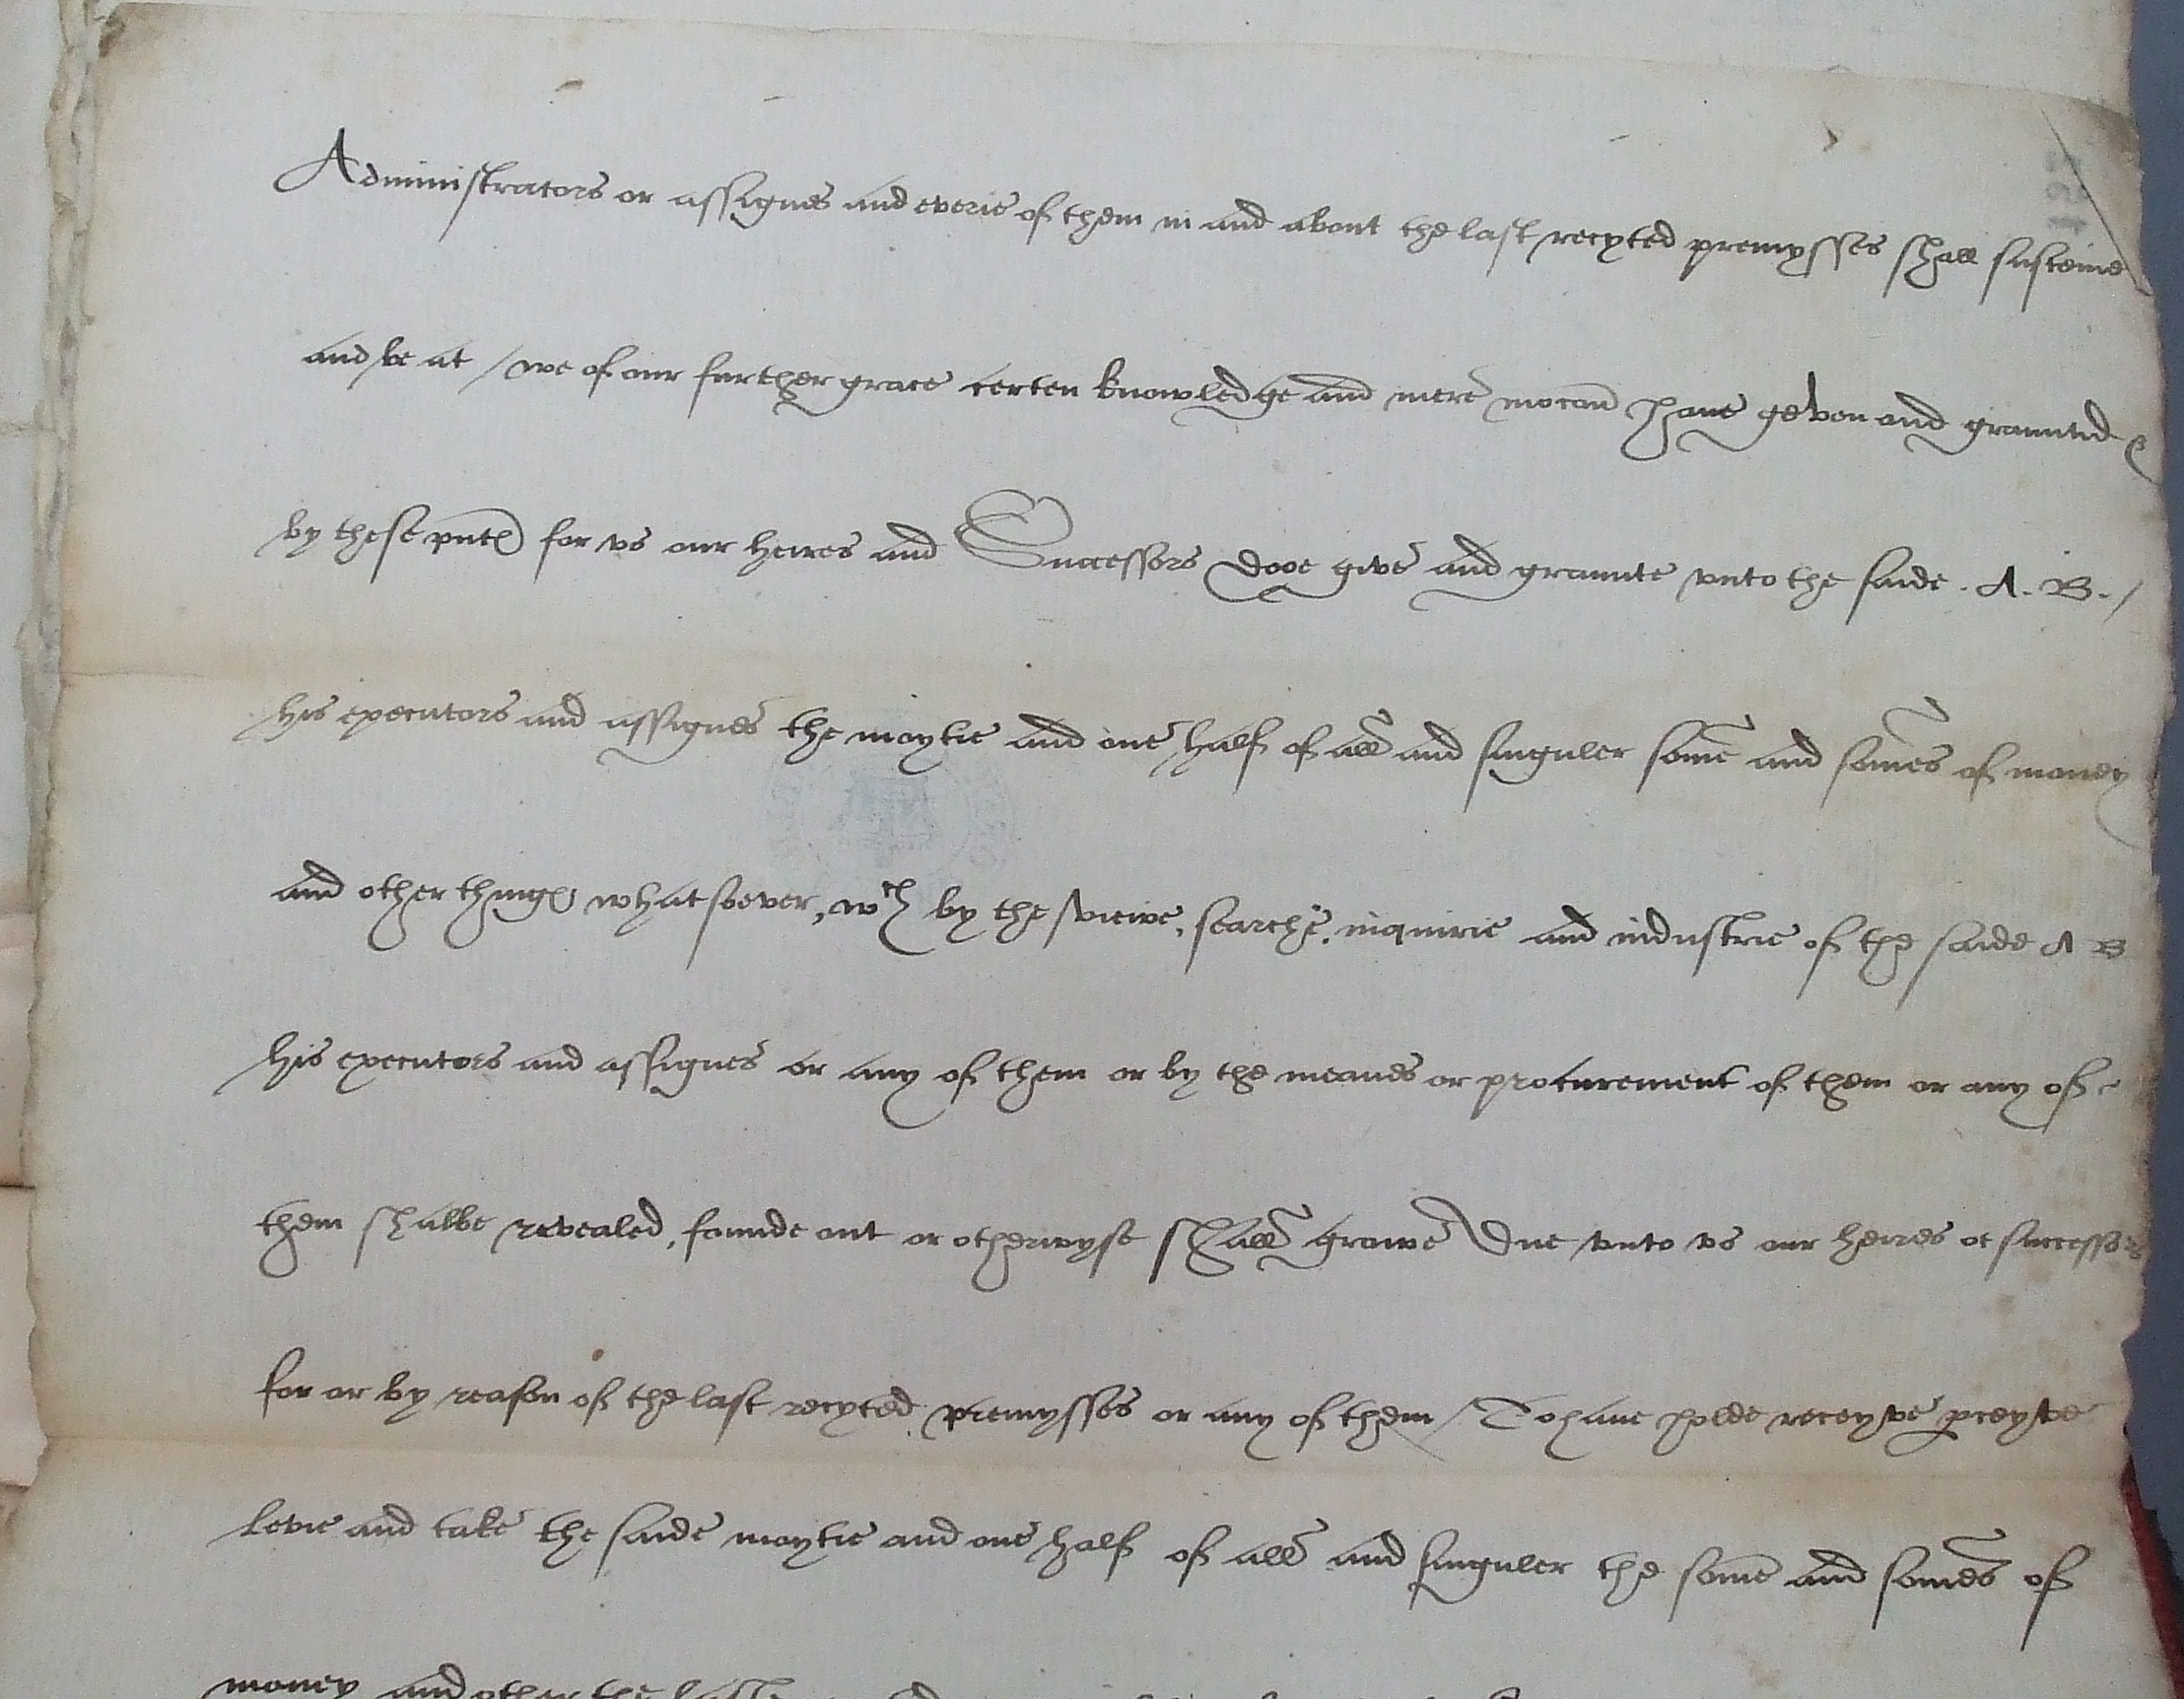 Administrators or assignes and everie of them in and about the last recyted premysses shall susteine
and be at / we of our further grace certen knowledge and mere mocōn have geven and graunted &
by these pntes for vs our heires and Successors dooe give and graunte vnto the saide . A . B . /
his executors and assignes the moytie and one half of all and singuler some and somes of money
and other thinges whatsoever, wch by the view, searche, inquirie and industrie of the saide A B
his executors and assignes or any of them or by the meanes or procurement of them or any of
them shalbe revealed, founde out or otherwyse shall growe due vnto vs our heires or successors
for or by reason of the last recyted premysses or any of them / To have holde receyve pceyve
levie and take the saide moytie and one half of all and singuler the some and somes of
money and other the